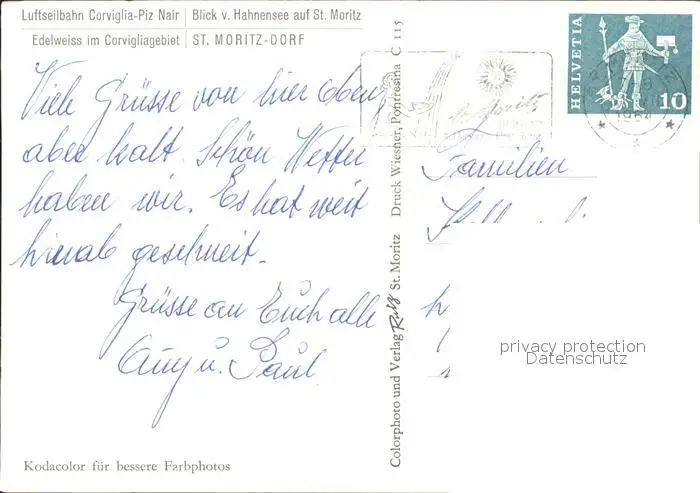 Luftseilbahn Corviglia-Piz Nair | Blick v. Hahnensee auf St. Moritz
Edelweiss im Corvigliagebiet | ST. MORITZ-DORF
Viele Grüsse von hier oben,
aber kalt. Schön Wetter
haben wir. Es hat weit
hinab geschneit.
Grüsse an Euch alle
u. Paul
Kodacolor für bessere Farbphotos
Colorphoto und Verlag Rutz St. Moritz Druck Wiesner, Pontresina C 115
St. Moritz
HELVETIA
10
1964
Familien
privacy protection
Datenschutz